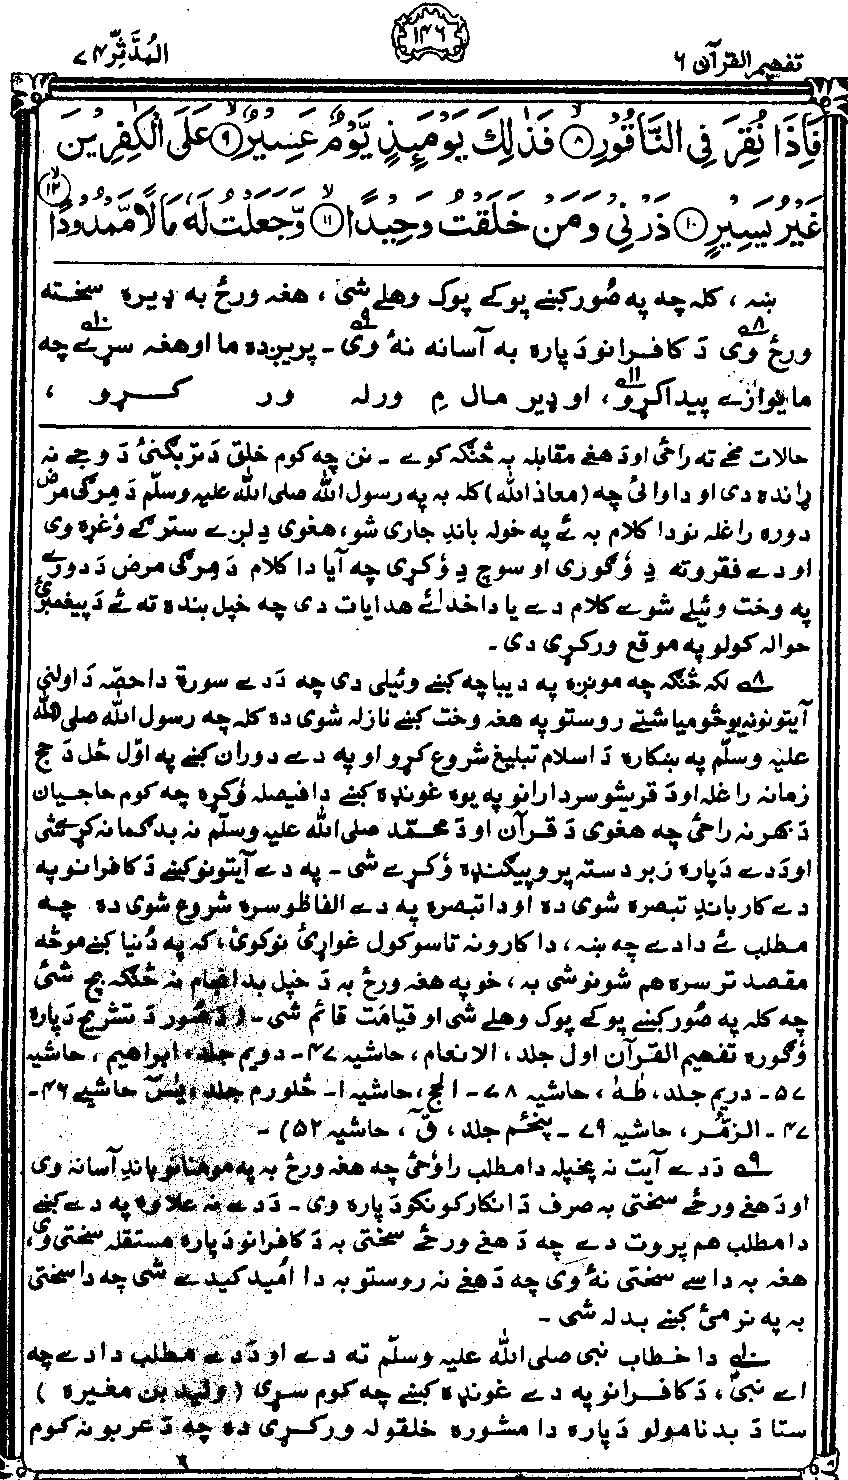 تفهيم القرآن ۶
۱۴۶
المُدَّثِّر ۷۴
فَاِذَا نُقِرَ فِى النَّاقُوْرِ ۸ فَذٰلِكَ يَوْمَئِذٍ يَّوْمٌ عَسِيْرٌ ۹ عَلَى الْكٰفِرِيْنَ
غَيْرُ يَسِيْرٍ ۱۰ ذَرْنِىْ وَمَنْ خَلَقْتُ وَحِيْدًا ۱۱ وَّجَعَلْتُ لَهٗ مَالًا مَّمْدُوْدًا ۱۲
ښه ، کله چه په صُور کښے پوکے پوک وهلے شی ، هغه ورځ به ډيره سخته
ورځ ۸ وی دَ کافرانو دَپاره به آسانه نهٔ ۹ وی ـ پريږده ما او هغه سړے ۱۰ چه
ما يوازے پيدا کړو ۱۱ ، او ډير مال مِ ورله ور کړو ،
حالات مخے ته راځی او دَهغے مقابله به څنګه کوے ـ نن چه کوم خلق دَ تربګنئ دَ وجے نه
ړانده دی او دا وائی چه (معاذ الله) کله به په رسول الله صلی الله عليه وسلّم دَ مِرګی مرض
دوره راغله نو دا کلام به ئے په خوله باندِ جاری شو ، هغوی دِ لږے سترګے وغړه وی
او دے فقروته دِ وُګوری او سوچ دِ وُکړی چه آيا دا کلام دَ مِرګی مرض دَ دورے
په وخت وئيلے شوے کلام دے يا دا خدائے هدايات دی چه خپل بنده ته ئے دَ پيغمبرئ
حواله کولو په موقع ورکړی دی ـ
۸ لکه څنګه چه مونږه په ديباچه کښے وئيلی دی چه دَدے سورة دا حصّه دَ اولنی
آيتونو نه يو څو مياشتے روستو په هغه وخت کښے نازله شوی ده کله چه رسول الله صلی الله
عليه وسلّم په ښکاره دَ اسلام تبليغ شروع کړو او په دے دوران کښے په اوّل ځل دَ حج
زمانه راغله او دَ قريشو سردارانو په يوه غونډه کښے دا فيصله وُکړه چه کوم حاجيان
دَ بهر نه راځی چه هغوی دَ قرآن او دَ محمّد صلی الله عليه وسلّم نه بدګمانه کړے شی
او دَدے دَپاره زبردسته پروپيګنډه وُکړے شی ـ په دے آيتونو کښے دَ کافرانو په
دے کار باندِ تبصره شوی ده او دا تبصره په دے الفاظو سره شروع شوی ده چه
مطلب ئے دادے چه ښه ، دا کارونه تاسو کول غواړئ نو کوئ ، که په دُنيا کښے مو څه
مقصد تر سره هم شو نو شی به ، خو په هغه ورځ به دَ خپل بدانجام نه څنګه بچ شئ
چه کله په صُور کښے پوکے پوک وهلے شی او قيامت قائم شی ـ ( دَ صُور دَ تشريح دَپاره
وُګوره تفهيم القرآن اول جلد ، الانعام ، حاشيه ۴۷ ـ دويم جلد ، ابراهيم ، حاشيه
۵۷ ـ دريم جلد ، طٰهٰ ، حاشيه ۷۸ ـ الحج ، حاشيه ۱ ـ څلورم جلد ، يٰسٓ حاشيے ۴۶ ـ
۴۷ ـ الزمّر ، حاشيه ۷۹ ـ پنځم جلد ، قٓ ، حاشيه ۵۲) ـ
۹ دَدے آيت نه پخپله دا مطلب راوُځی چه هغه ورځ به په مومنانو باندِ آسانه وی
او دَهغے ورځے سختی به صرف دَ انکار کونکو دَپاره وی ـ دَدے نه علاوه په دے کښے
دا مطلب هم پروت دے چه دَ هغے ورځے سختی به دَ کافرانو دَپاره مستقله سختی وی ،
هغه به داسے سختی نهٔ وی چه دَهغے نه روستو به دا اُميد کيدے شی چه دا سختی
به په نرمئ کښے بدله شی ـ
۱۰ دا خطاب نبی صلی الله عليه وسلّم ته دے او دَدے مطلب دا دے چه
اے نبی ، دَ کافرانو په دے غونډه کښے چه کوم سړی ( وليد بن مغيره )
ستا دَ بدنامولو دَپاره دا مشوره خلقو له ورکړی ده چه دَ عربو نه کوم